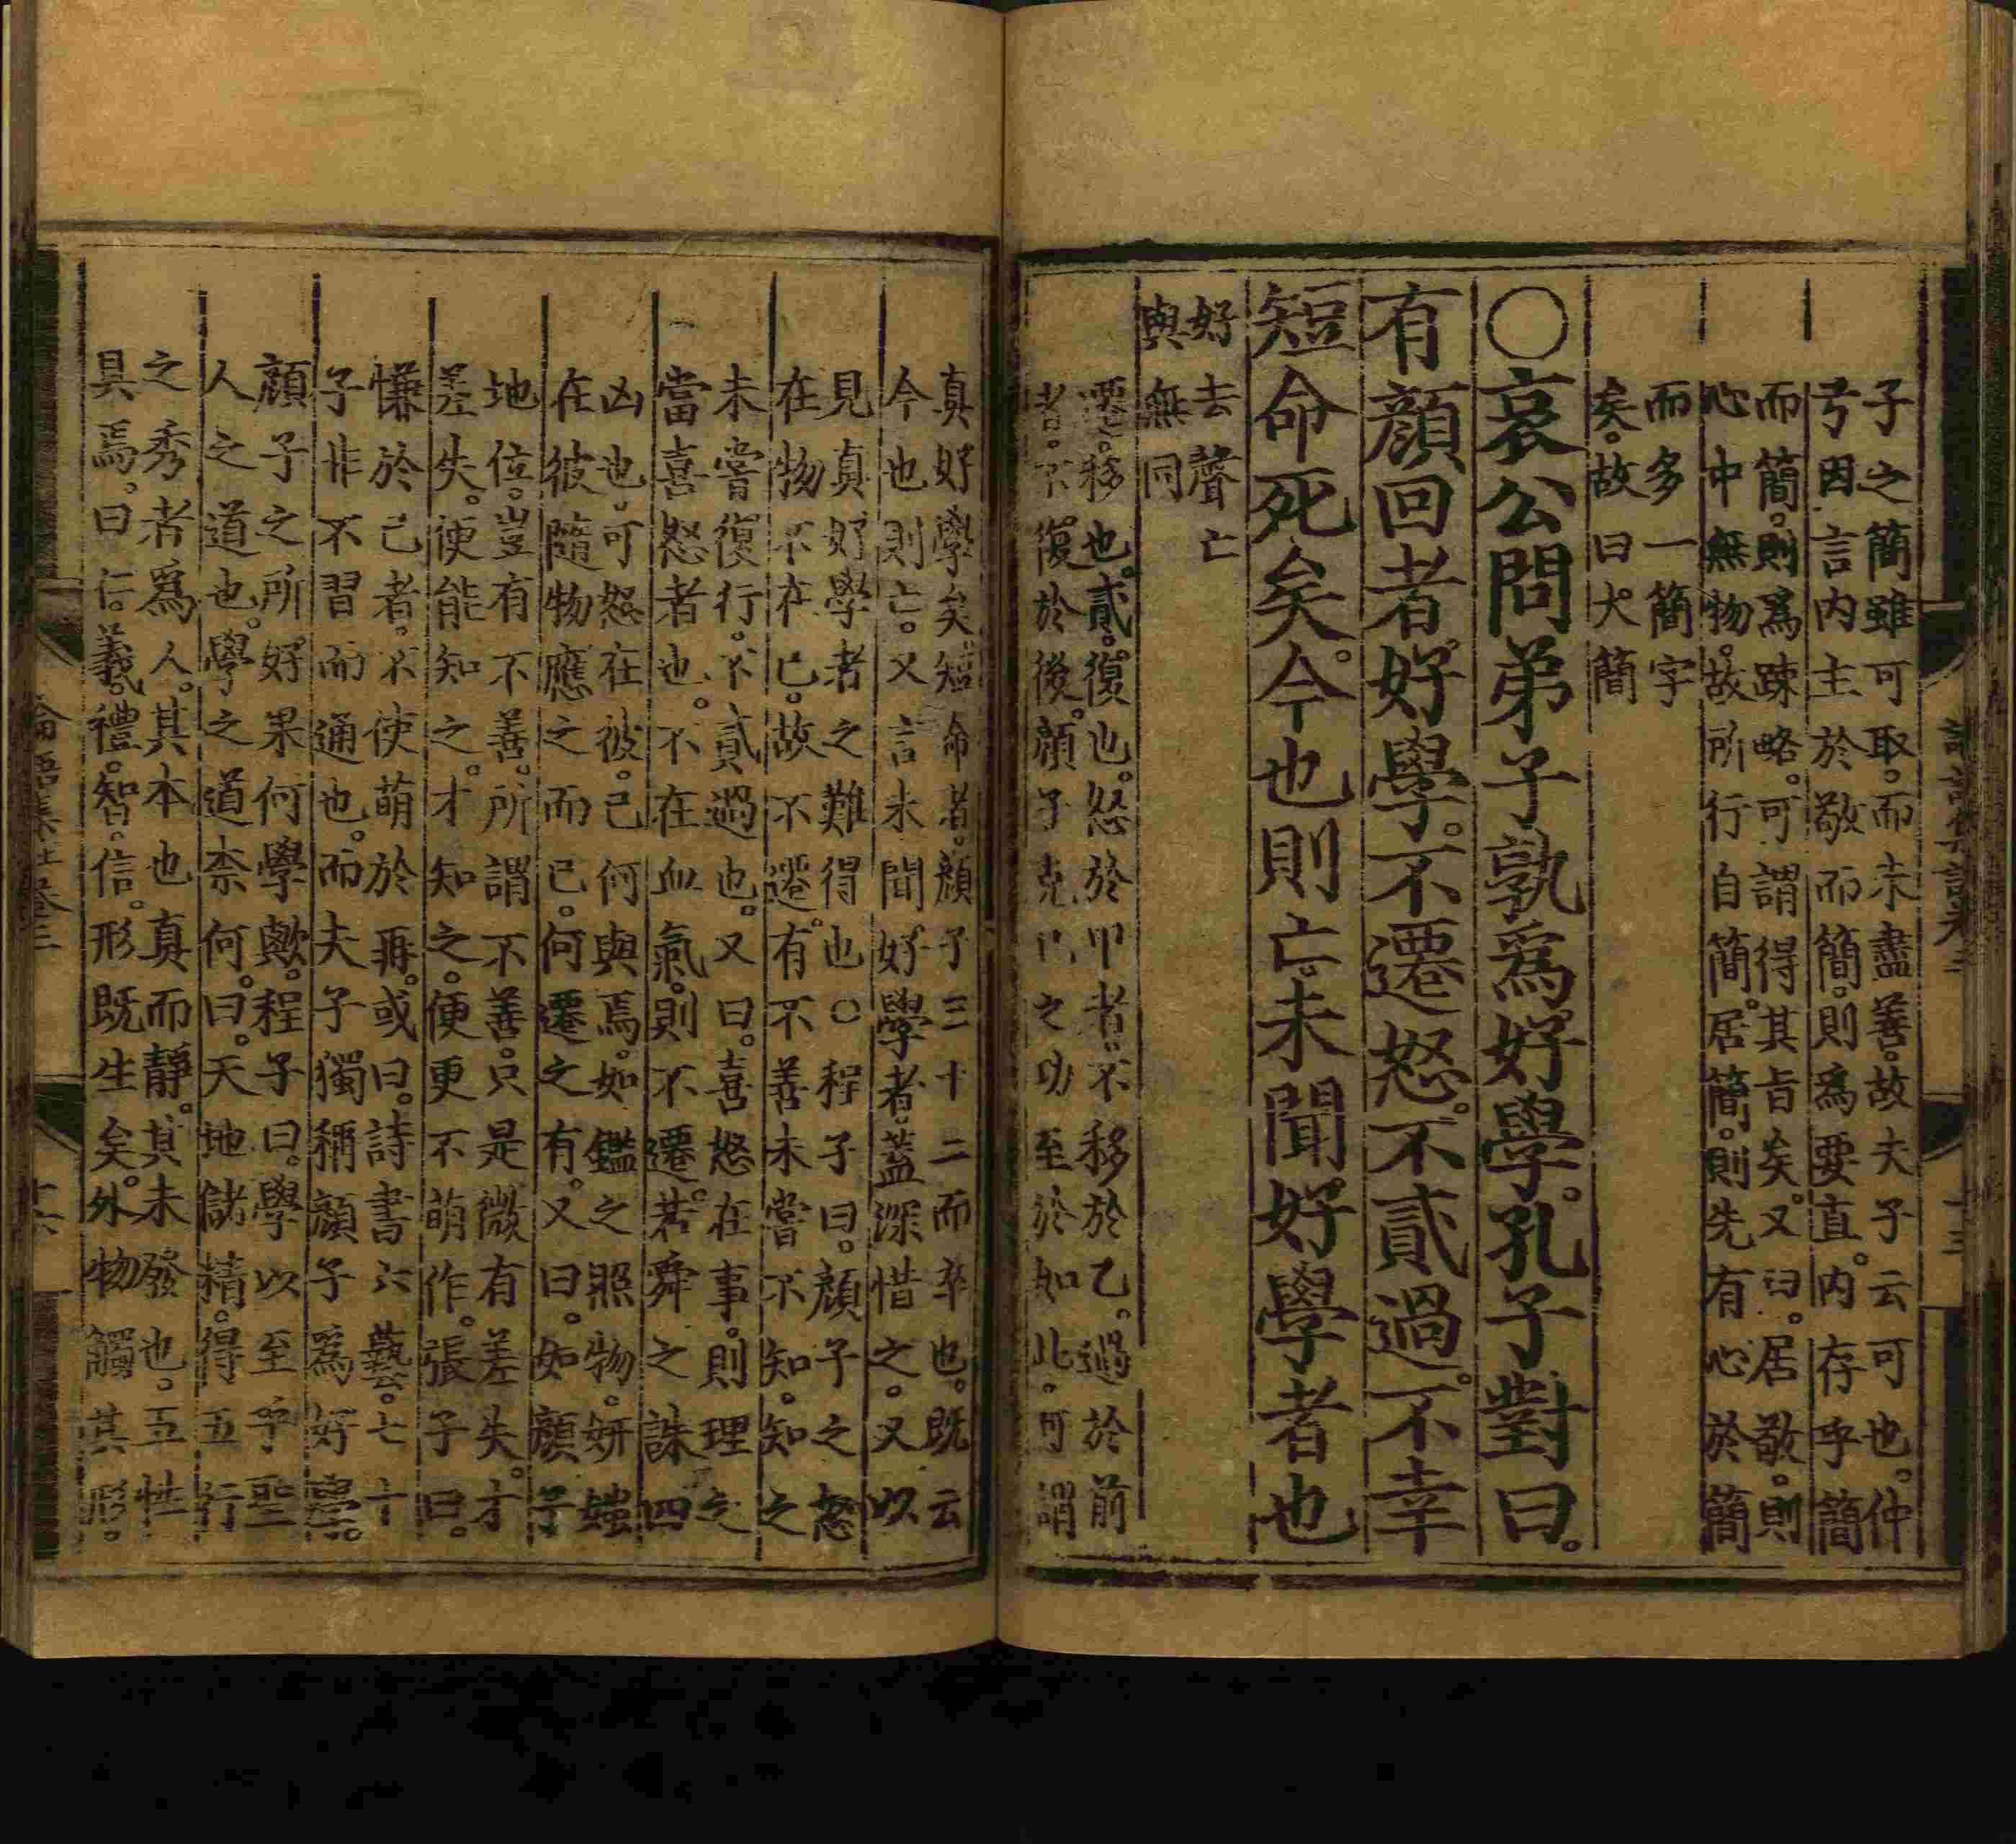 子之簡雖可取。而未盡善。故夫子云可也。仲
弓因言內主於敬而簡。則爲要直。內存乎簡
而簡。則爲疎略。可謂得其旨矣。又曰。居敬。則
心中無物。故所行自簡。居簡。則先有心於簡
而多一簡字
矣。故曰大簡
〇哀公問弟子孰爲好學。孔子對曰。
有顏回者。好學。不遷怒。不貳過。不幸
短命死矣。今也則亡。未聞好學者也
好去聲亡
與無同
遷。移也。貳。復也。怒於甲者。不移於乙。過於前
者。不復於後。顏子克己之功至於如此。可謂
真好學矣。短命者。顏子三十二而卒也。既云
今也則亡。又言未聞好學者。蓋深惜之。又以
見真好學者之難得也〇程子曰。顏子之怒
在物不在己。故不遷。有不善未嘗不知。知之
未嘗復行。不貳過也。又曰。喜怒在事。則理之
當喜怒者也。不在血氣。則不遷。若舜之誅四
凶也。可怒在彼。己何與焉。如鑑之照物。妍媸
在彼隨物應之而已。何遷之有。又曰。如顏子
地位。豈有不善。所謂不善。只是微有差失。才
差失。便能知之。才知之。便更不萌作。張子曰。
慊於己者。不使萌於再。或曰。詩書六藝。七十
子非不習而通也。而夫子獨稱顏子爲好學。
顏子之所好果何學歟。程子曰。學以至乎聖
人之道也。學之道柰何。曰。天地儲精。得五行
之秀者爲人。其本也真而靜。其未發也。五性
具焉。曰仁。義。禮。智。信。形既生矣。外物觸其形。
論語集註卷三
十六